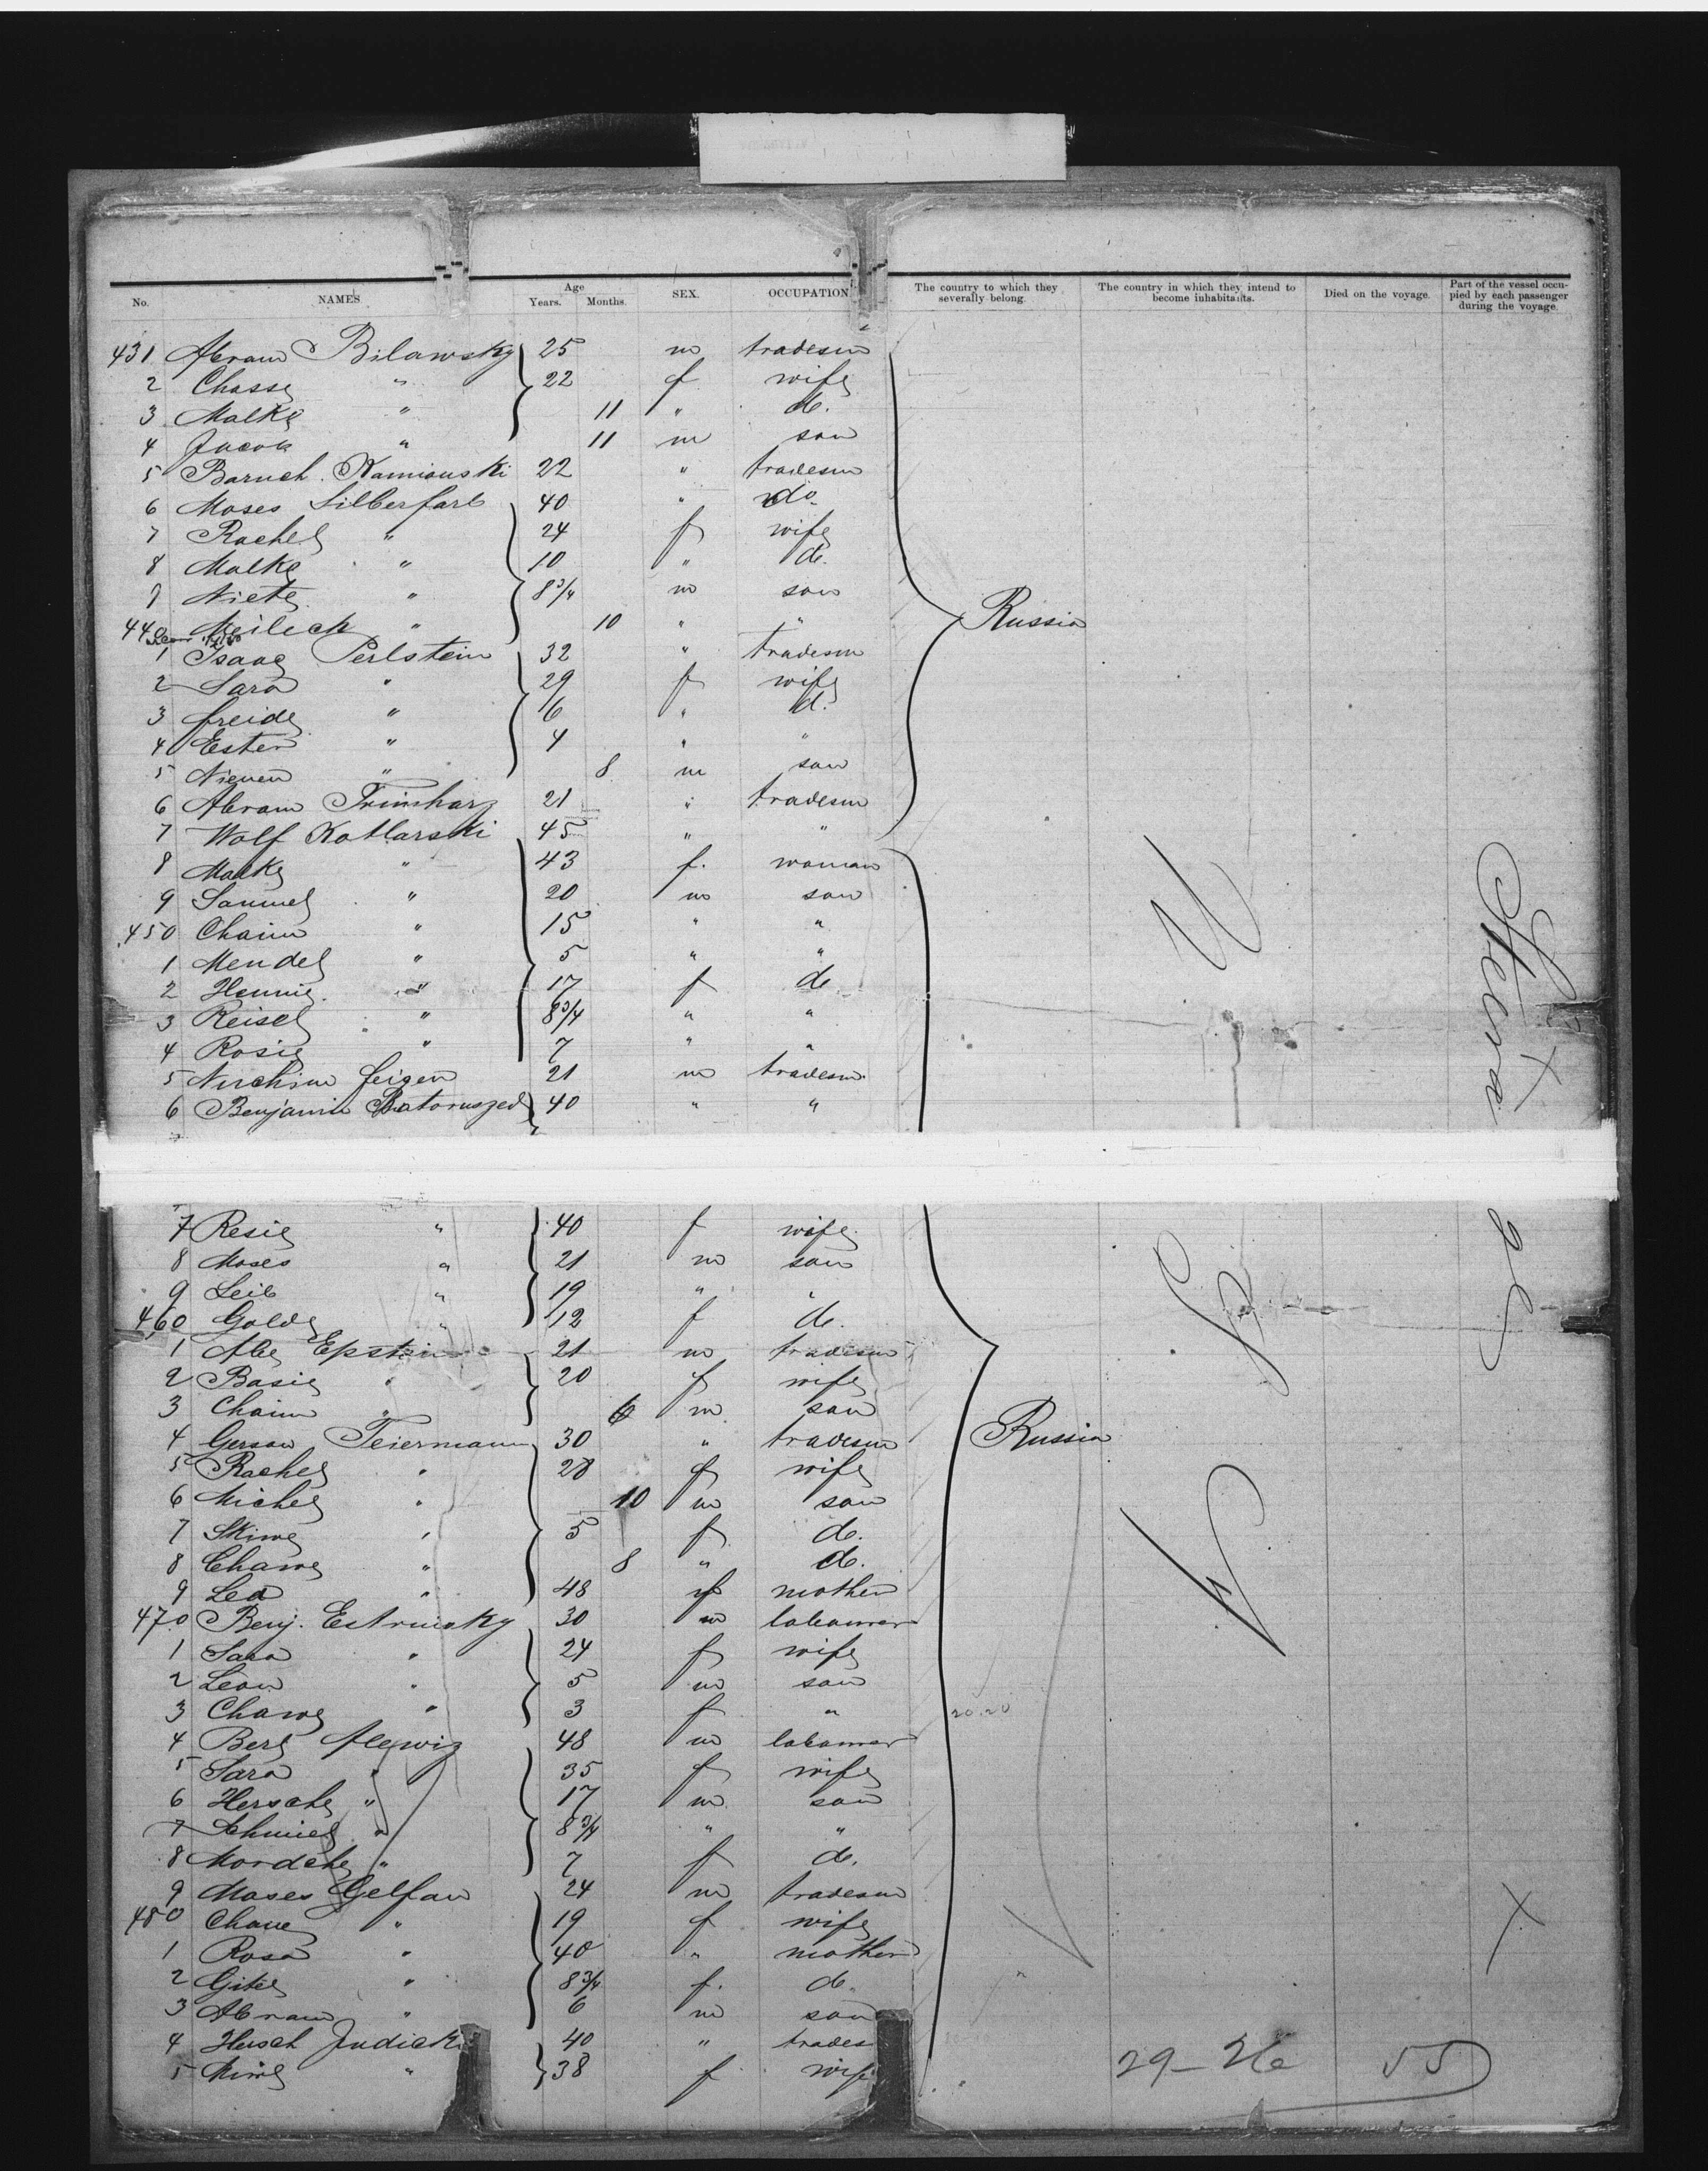 No. NAMES Age Years. Months. SEX. OCCUPATION The country to which they severally belong. The country in which they intend to become inhabitants. Died on the voyage. Part of the vessel occupied by each passenger during the voyage.
431 Abram Bilawsky 25 m tradesm
2 Chasse " 22 f wife
3 Malke " 11 " d.
4 Jacob " 11 m son
5 Baruch Kamionski 22 " tradesm
6 Moses Silberfarb 40 " do.
7 Rachel " 24 f wife
8 Malke " 10 " d.
9 " 8 3/4 m son
440 Meilech " 10 " " Russia
1 Isaac Perlstein 32 " tradesm
2 Sara " 29 f wife
3 freide " 6 " d.
4 Ester " 4 " "
5 " 8 m son
6 Abram 21 " tradesm
7 Wolf Kotlarski 45 " "
8 Malke " 43 f. woman
9 Samuel " 20 m son
450 Chaim " 15 " "
1 Mendel " 5 " "
2 Hennie " 17 f d
3 Reisel " 8 3/4 " "
4 Rosie " 7 " "
5 Nuchim feigen 21 m tradesm.
6 Benjamin 40 " "
7 Resie " 40 f wife
8 Moses " 21 m son
9 Leib " 19 " "
460 Golde " 12 f d.
1 Abe Epstein 21 m tradesm
2 Basie " 20 f wife
3 Chaim " 6 m son
4 Gerson Feiermann 30 " tradesm Russia
5 Rachel " 28 f wife
6 Michel " 10 m son
7 " 5 f d.
8 Chawe " 8 " d.
9 Lea " 48 f mother
470 Benj. Estrinsky 30 m labourer
1 Sara " 24 f wife
2 Leon " 5 m son
3 Chawe " 3 f "
4 Berl 48 m labourer
5 Sara " 35 f wife
6 Hersche " 17 m son
7 Schmiel " 8 3/4 " "
8 Mordche " 7 f d.
9 Moses Gelfan 24 m tradesm
480 Chane " 19 f wife
1 Rosa " 40 " mother
2 Gitel " 8 3/4 f. d.
3 Abram " 6 m son
4 Hersch Judicki 40 " trades
5 " 38 f wife
29-26 55
U S A